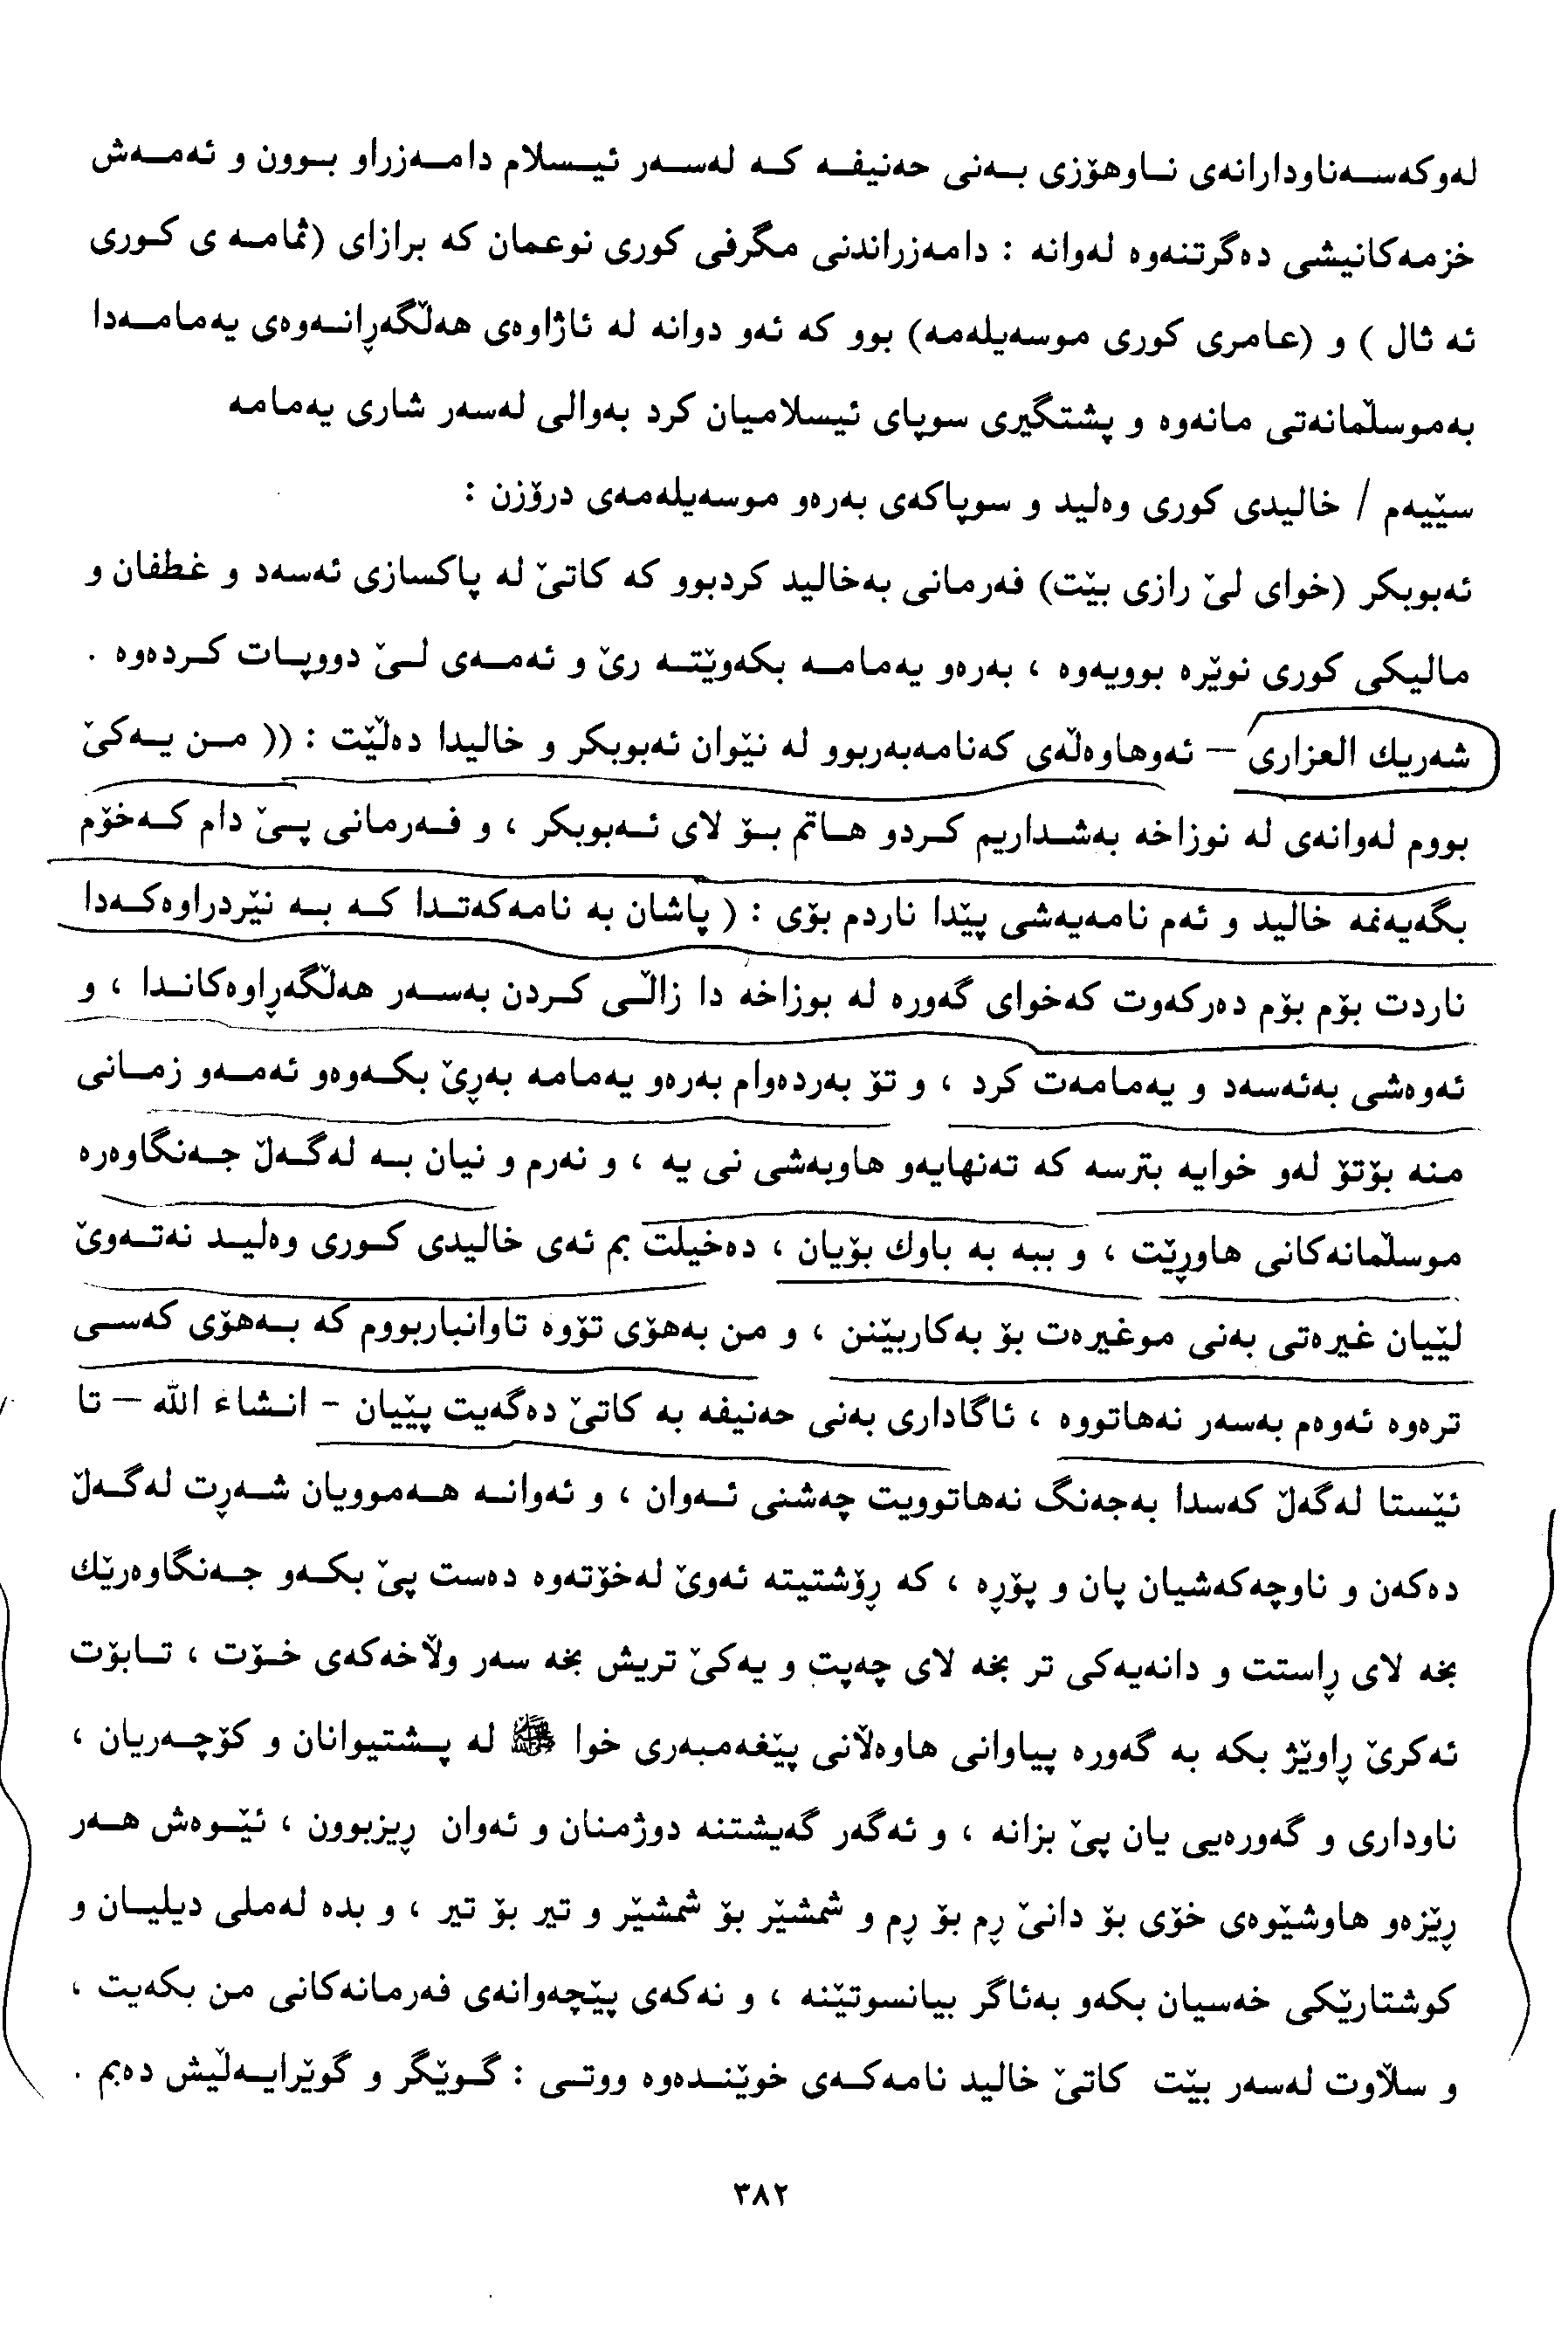 لەوکەسەناودارانەی ناوهۆزی بەنی حەنیفە کە لەسەر ئیسلام دامەزراو بوون و ئەمەش
خزمەکانیشی دەگرتنەوە لەوانە : دامەزراندنی مگرفی کوری نوعمان کە برازای (ثمامە ی کوری
ئە ثال ) و (عامری کوری موسەیلەمە) بوو کە ئەو دوانە لە ئاژاوەی هەڵگەڕانەوەی یەمامەدا
بەموسڵمانەتی مانەوە و پشتگیری سوپای ئیسلامیان کرد بەوالی لەسەر شاری یەمامە
سێیەم / خالیدی کوری وەلید و سوپاکەی بەرەو موسەیلەمەی درۆزن :
ئەبوبکر (خوای لێ رازی بێت) فەرمانی بەخالید کردبوو کە کاتێ لە پاکسازی ئەسەد و غطفان و
مالیکی کوری نوێرە بوویەوە ، بەرەو یەمامە بکەوێتە رێ و ئەمەی لێ دووپات کردەوە .
شەریك العزاری – ئەوهاوەڵەی کەنامەبەربوو لە نێوان ئەبوبکر و خالیدا دەڵێت : (( من یەکێ
بووم لەوانەی لە نوزاخە بەشداریم کردو هاتم بۆ لای ئەبوبکر ، و فەرمانی پێ دام کەخۆم
بگەیەنمە خالید و ئەم نامەیەشی پێدا ناردم بۆی : ( پاشان بە نامەکەتدا کە بە نێردراوەکەدا
ناردت بۆم بۆم دەرکەوت کەخوای گەورە لە بوزاخە دا زاڵی کردن بەسەر هەڵگەڕاوەکاندا ، و
ئەوەشی بەئەسەد و یەمامەت کرد ، و تۆ بەردەوام بەرەو یەمامە بەڕێ بکەوەو ئەمەو زمانی
منە بۆتۆ لەو خوایە بترسە کە تەنهایەو هاوبەشی نی یە ، و نەرم و نیان بە لەگەڵ جەنگاوەرە
موسڵمانەکانی هاوڕێت ، و ببە بە باوك بۆیان ، دەخیلت بم ئەی خالیدی کوری وەلید نەتەوێ
لێیان غیرەتی بەنی موغیرەت بۆ بەکاربێنن ، و من بەهۆی تۆوە تاوانباربووم کە بەهۆی کەسی
ترەوە ئەوەم بەسەر نەهاتووە ، ئاگاداری بەنی حەنیفە بە کاتێ دەگەیت پێیان - انشاء الله – تا
ئێستا لەگەڵ کەسدا بەجەنگ نەهاتوویت چەشنی ئەوان ، و ئەوانە هەموویان شەڕت لەگەڵ
دەکەن و ناوچەکەشیان پان و پۆڕە ، کە ڕۆشتیتە ئەوێ لەخۆتەوە دەست پێ بکەو جەنگاوەرێك
بخە لای ڕاستت و دانەیەکی تر بخە لای چەپت و یەکێ تریش بخە سەر وڵاخەکەی خۆت ، تابۆت
ئەکرێ ڕاوێژ بکە بە گەورە پیاوانی هاوەڵانی پێغەمبەری خوا ﷺ لە پشتیوانان و کۆچەریان ،
ناوداری و گەورەیی یان پێ بزانە ، و ئەگەر گەیشتنە دوژمنان و ئەوان ڕیزبوون ، ئێوەش هەر
ڕێزەو هاوشێوەی خۆی بۆ دانێ ڕم بۆ ڕم و شمشێر بۆ شمشێر و تیر بۆ تیر ، و بدە لەملی دیلیان و
کوشتارێکی خەسیان بکەو بەئاگر بیانسوتێنە ، و نەکەی پێچەوانەی فەرمانەکانی من بکەیت ،
و سڵاوت لەسەر بێت کاتێ خالید نامەکەی خوێندەوە ووتی : گوێگر و گوێرایەڵیش دەبم .
٣٨٢